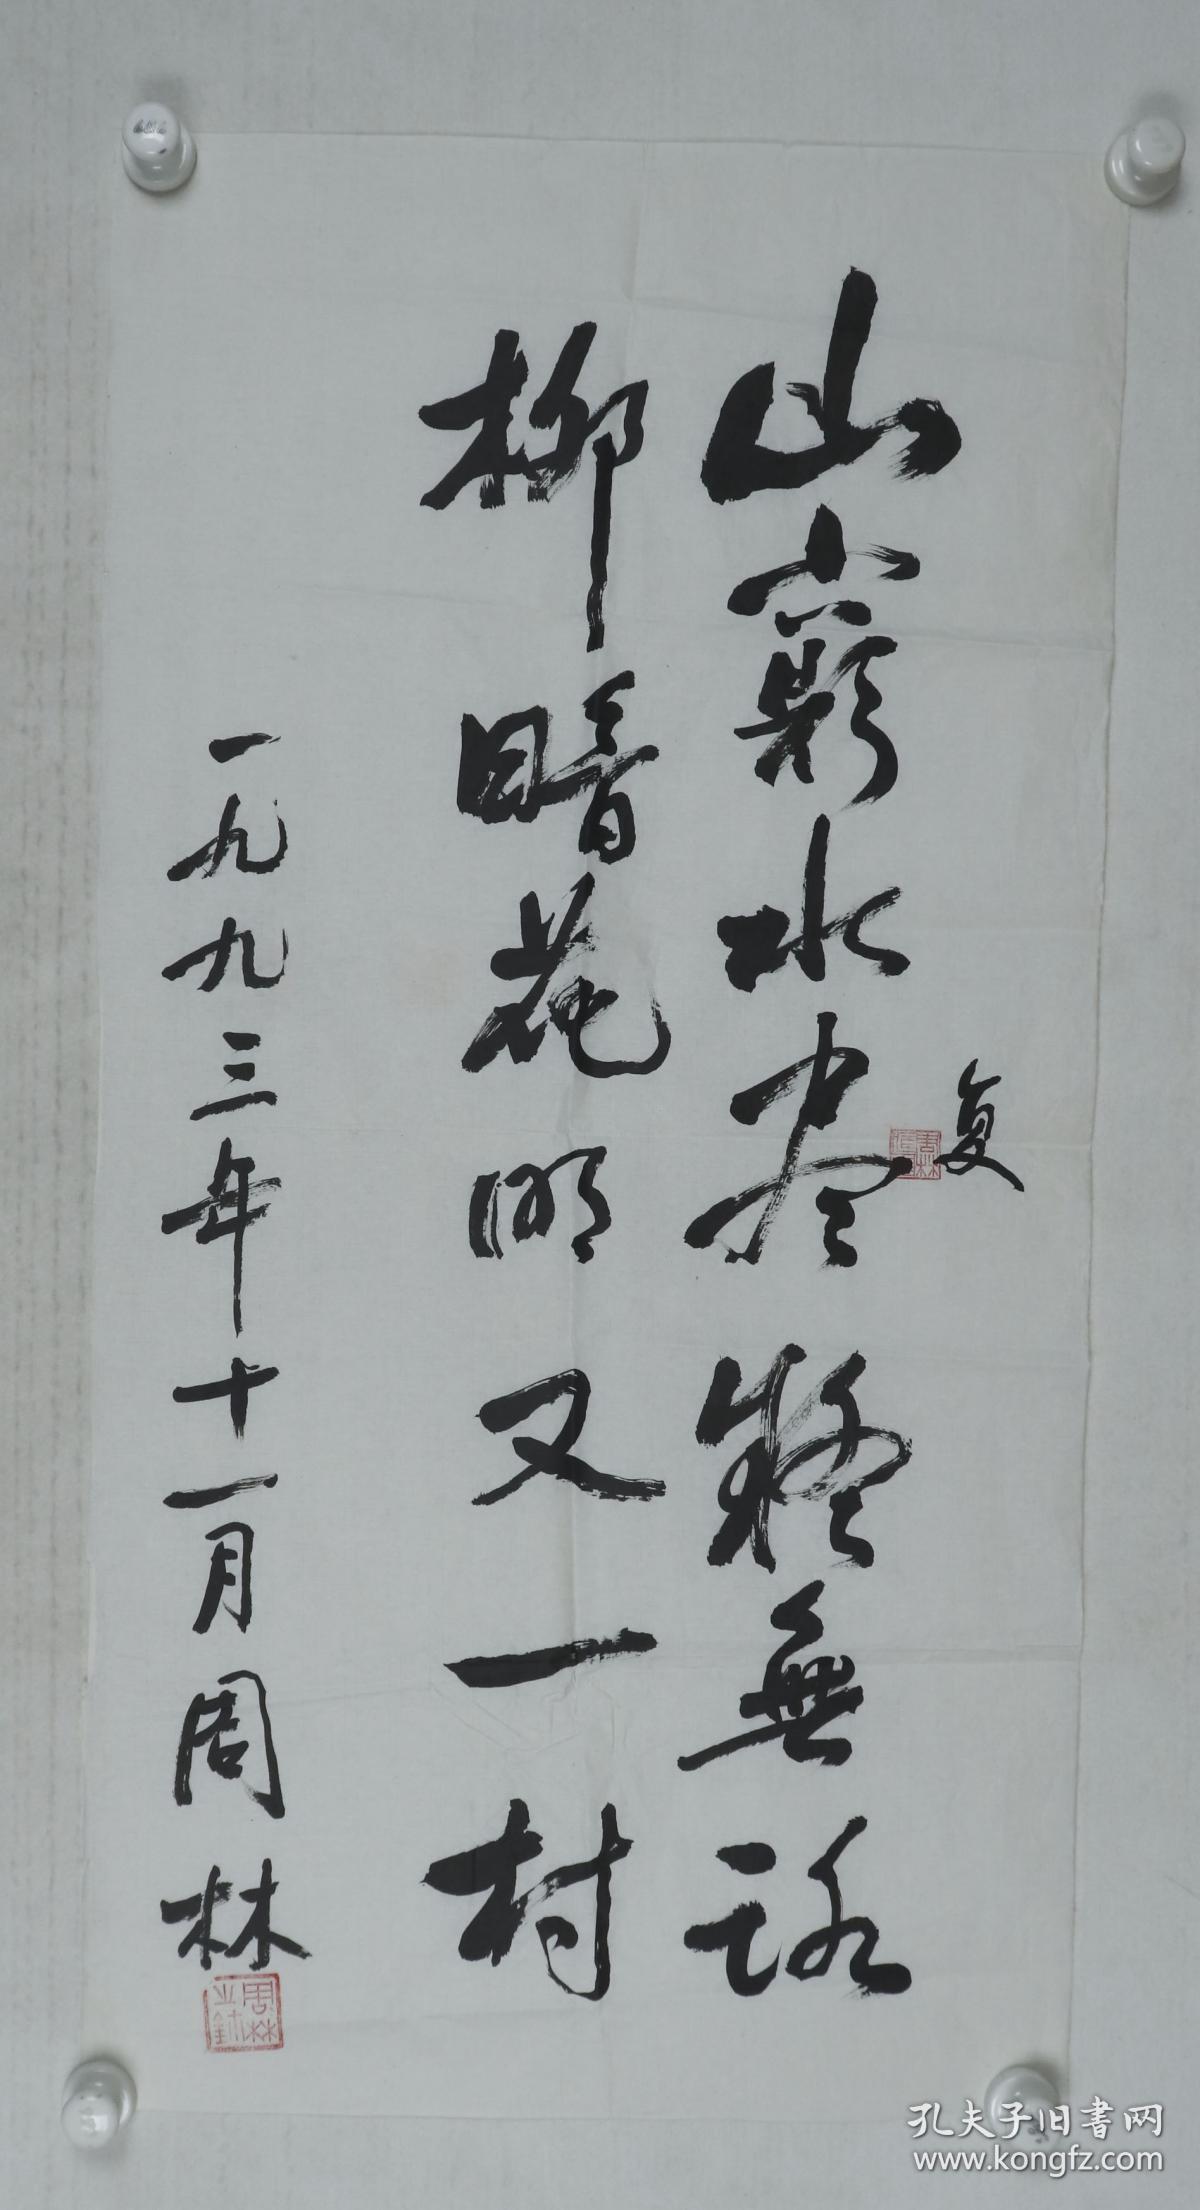 山窮水尽疑無路
复
柳暗花明又一村
一九九三年十一月周林
周林之鉨
孔夫子旧書网
www.kongfz.com